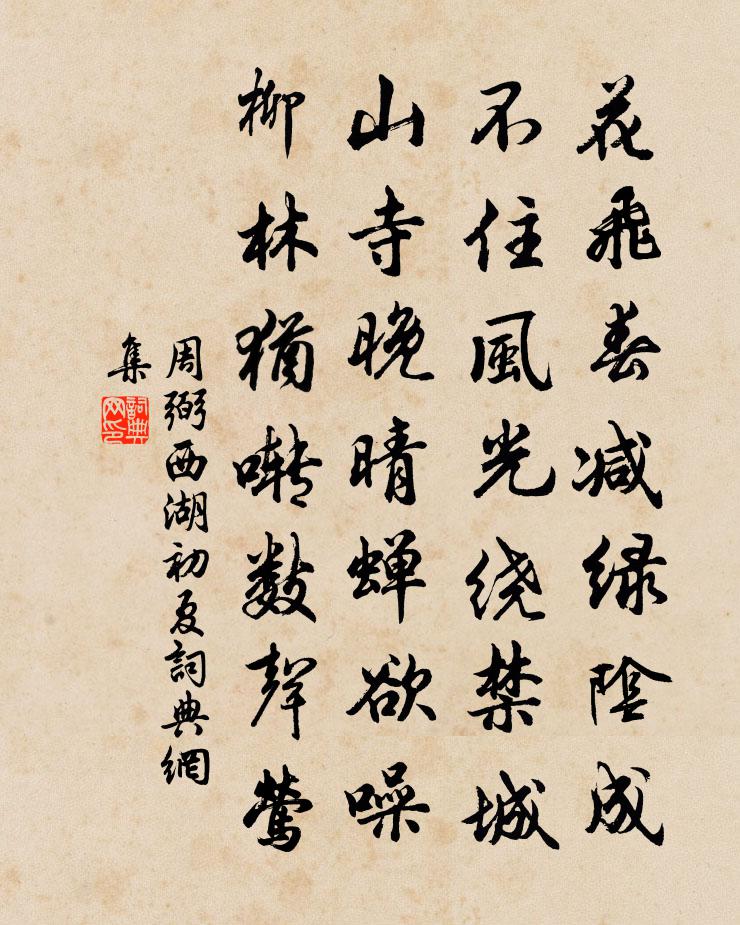 花飛春減绿陰成
不住風光绕禁城
山寺晚晴蝉欲噪
柳林猶啭数聲莺
周弼西湖初夏詞典網
集
詞典网印